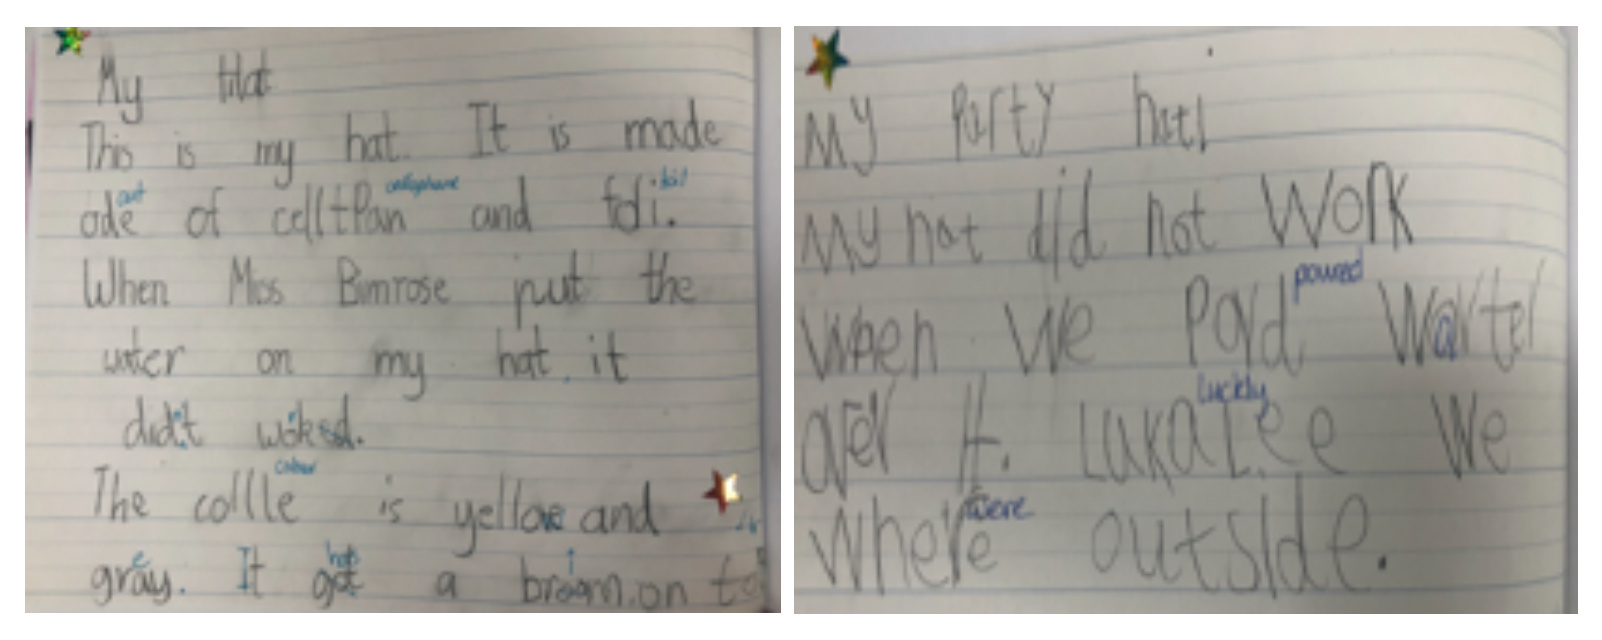 My Hat
This is my hat. It is made
out
cellophane
foil
ode of celltPan and fdi.
When Miss Bimrose put the
water on my hat, it
didn't woksd.
colour
The collle is yellow and
hat
gray. It got a on to
My Party hat!
My hat did not Work
poured
when We Pord Warter
luckly
over It. LukaLee We
were
where outside.